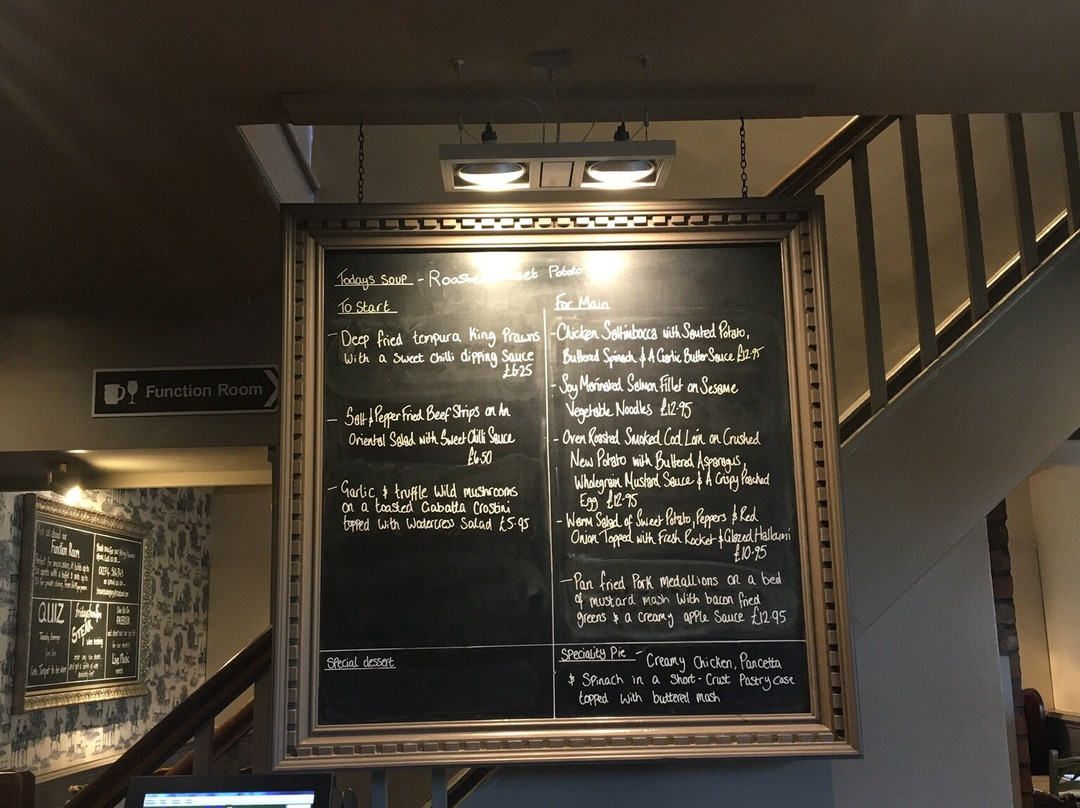 Todays soup - Roaste et Potato
To Start
Deep fried tempura King Prawns
With a Sweet Chilli dipping Sauce
£6.25
Salt & Pepper Fried Beef Strips on An
Oriental Salad with Sweet Chilli Sauce
£6.50
Garlic & truffle Wild mushrooms
on a toasted Ciabatta Crostini
topped with Watercress Salad £5.95
Special dessert
For Main
- Chicken Saltimbocca with Sauted Potato,
Buttered Spinach & A Garlic Butter Sauce £12.95
- Soy Marinated Salmon Fillet on Sesame
Vegetable Noodles £12.95
- Oven Roasted Smoked Cod Loin on Crushed
New Potato with Buttered Asparagus,
Wholegrain Mustard Sauce & A Crispy Poached
Egg £12.95
- Warm Salad of Sweet Potato, Peppers & Red
Onion Topped with Fresh Rocket & Glazed Halloumi
£10.95
- Pan fried Pork medallions on a bed
of mustard mash With bacon fried
greens & a creamy apple Sauce £12.95
Speciality Pie - Creamy Chicken, Pancetta
& Spinach in a Short-Crust Pastry case
topped with buttered mash
Function Room
Function Room
QUIZ
STEAK
FACEBOOK
Live Music